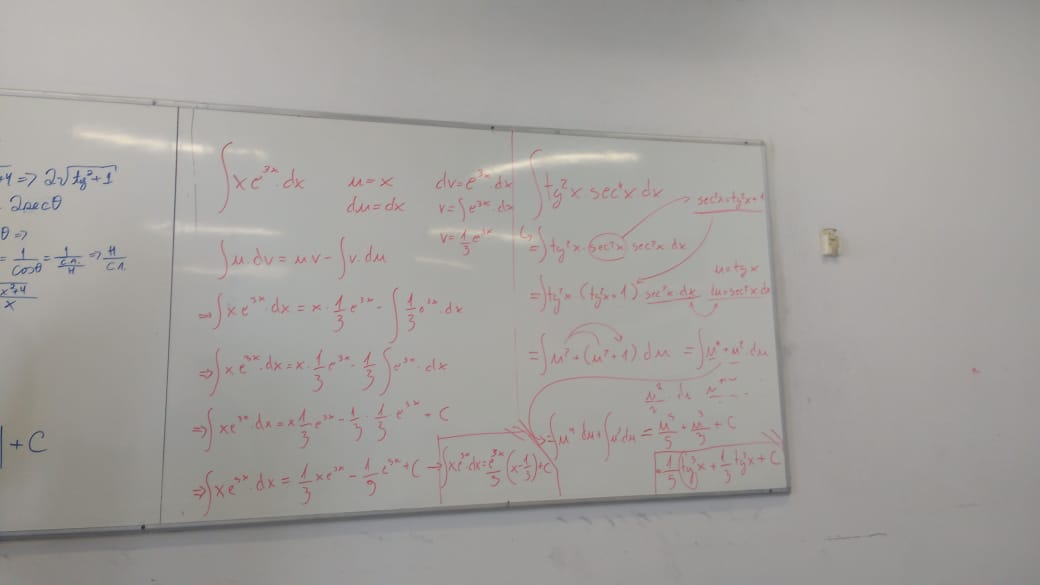 +4 => 2√tg²+1
2secθ
θ =>
= 1/cosθ = 1/(C.A./H) => H/C.A.
x²+4/x
| + C
∫xe³ˣ·dx u=x dv=e³ˣ·dx
du=dx v=∫e³ˣ·dx
v=1/3 e³ˣ
∫u·dv = uv - ∫v·du
=> ∫xe³ˣ·dx = x·1/3 e³ˣ - ∫1/3 e³ˣ·dx
=> ∫xe³ˣ·dx = x·1/3 e³ˣ - 1/3 ∫e³ˣ·dx
=> ∫xe³ˣ·dx = x 1/3 e³ˣ - 1/3 · 1/3 e³ˣ + C
=> ∫xe³ˣ·dx = 1/3 xe³ˣ - 1/9 e³ˣ + C → ∫xe³ˣ·dx = e³ˣ/3 (x-1/3)+C
∫tg²x·sec⁴x dx
sec²x=tg²x+1
=∫tg²x·sec²x sec²x dx
u=tgx
=∫tg²x·(tg²x+1) sec²x·dx du=sec²x dx
=∫u²+(u²+1) du = ∫u⁴+u²·du
=> ∫u⁴ du+∫u²du = u⁵/5 + u³/3 + C
=1/5 (tg⁵x + 1/3 tg³x + C